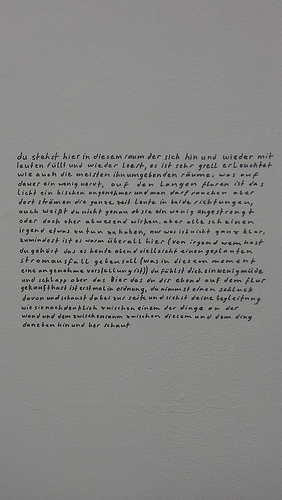 du stehst hier in diesem raum der sich hin und wieder mit
leuten füllt und wieder leert, es ist sehr grell erleuchtet
wie auch die meisten ihn umgebenden räume, was auf
dauer ein wenig nervt, auf den langen fluren ist das
licht ein bischen angenehmer und man darf rauchen aber
dort strömen die ganze zeit leute in beide richtungen,
auch weißt du nicht genau ob sie ein wenig angestrengt
oder doch eher abwesend wirken, aber alle scheinen
irgend etwas zu tun zu haben, nur was ist nicht ganz klar,
zumindest ist es warm überall hier (von irgend wem hast
du gehört das es heute abend vielleicht einen geplanten
stromausfall geben soll (was in diesem moment
eine angenehme vorstellung ist)) du fühlst dich ein wenig müde
und schlapp aber das bier das du dir eben auf dem flur
gekauft hast ist erst mal in ordnung, du nimmst einen schluck
davon und schaust dabei zur seite und siehst deine begleitung
wie sie nachdenklich zwischen einem der dinge an der
wand und dem zwischenraum zwischen diesem und dem ding
daneben hin und her schaut